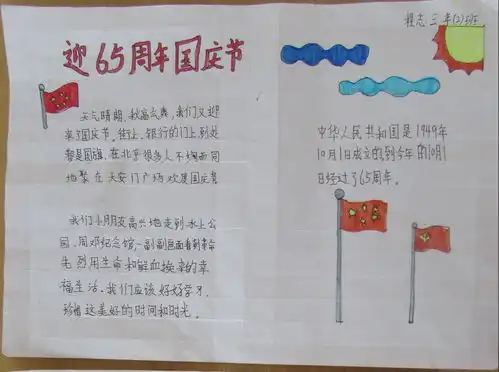 程志 三年(2)班
迎65周年国庆节
天气晴朗,秋高气爽,我们又迎
来了国庆节。街上、银行的门上,到处
都是国旗,在北京很多人不约而同
地聚在天安门广场欢度国庆节
我们小朋友高兴地走到水上公
园、周邓纪念馆,一副副画面看到革命
先烈用生命和鲜血换来的幸
福生活。我们应该好好学习,
珍惜这美好的时间和时光。
中华人民共和国是1949年
10月1日成立的,到今年的10月1
日经过了65周年。